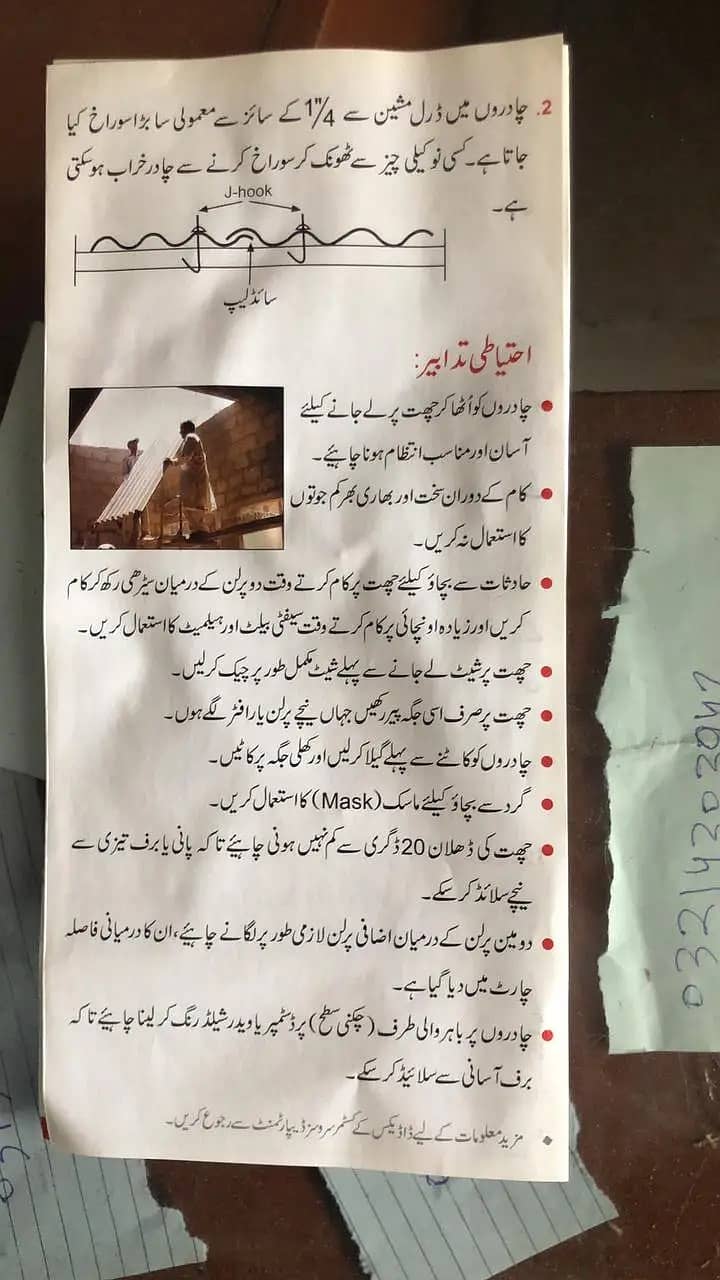 2. چادروں میں ڈرل مشین سے 1/4" کے سائز سے معمولی سا بڑا سوراخ کیا
جاتا ہے۔ کسی نوکیلی چیز سے ٹھونک کر سوراخ کرنے سے چادر خراب ہوسکتی
ہے۔
J-hook
سائڈ لیپ
احتیاطی تدابیر:
● چادروں کو اُٹھا کر چھت پر لے جانے کیلئے
آسان اور مناسب انتظام ہونا چاہیئے۔
● کام کے دوران سخت اور بھاری بھرکم جوتوں
کا استعمال نہ کریں۔
● حادثات سے بچاؤ کیلئے چھت پر کام کرتے وقت دو پرلن کے درمیان سیڑھی رکھ کر کام
کریں اور زیادہ اونچائی پر کام کرتے وقت سیفٹی بیلٹ اور ہیلمیٹ کا استعمال کریں۔
● چھت پر شیٹ لے جانے سے پہلے شیٹ مکمل طور پر چیک کرلیں۔
● چھت پر صرف اسی جگہ پیر رکھیں جہاں نیچے پرلن یا رافٹر لگے ہوں۔
● چادروں کو کاٹنے سے پہلے گیلا کرلیں اور کھلی جگہ پر کاٹیں۔
● گرد سے بچاؤ کیلئے ماسک (Mask) کا استعمال کریں۔
● چھت کی ڈھلان 20 ڈگری سے کم نہیں ہونی چاہیئے تاکہ پانی یا برف تیزی سے
نیچے سلائڈ کر سکے۔
● دو مین پرلن کے درمیان اضافی پرلن لازمی طور پر لگانے چاہیئے، ان کا درمیانی فاصلہ
چارٹ میں دیا گیا ہے۔
● چادروں پر باہر والی طرف (چکنی سطح) پر ڈسٹمپر یا ویدر شیلڈ رنگ کر لینا چاہیئے تاکہ
برف آسانی سے سلائیڈ کر سکے۔
◆ مزید معلومات کے لیے ڈاڈیکس کے کسٹمر سروسز ڈیپارٹمنٹ سے رجوع کریں۔